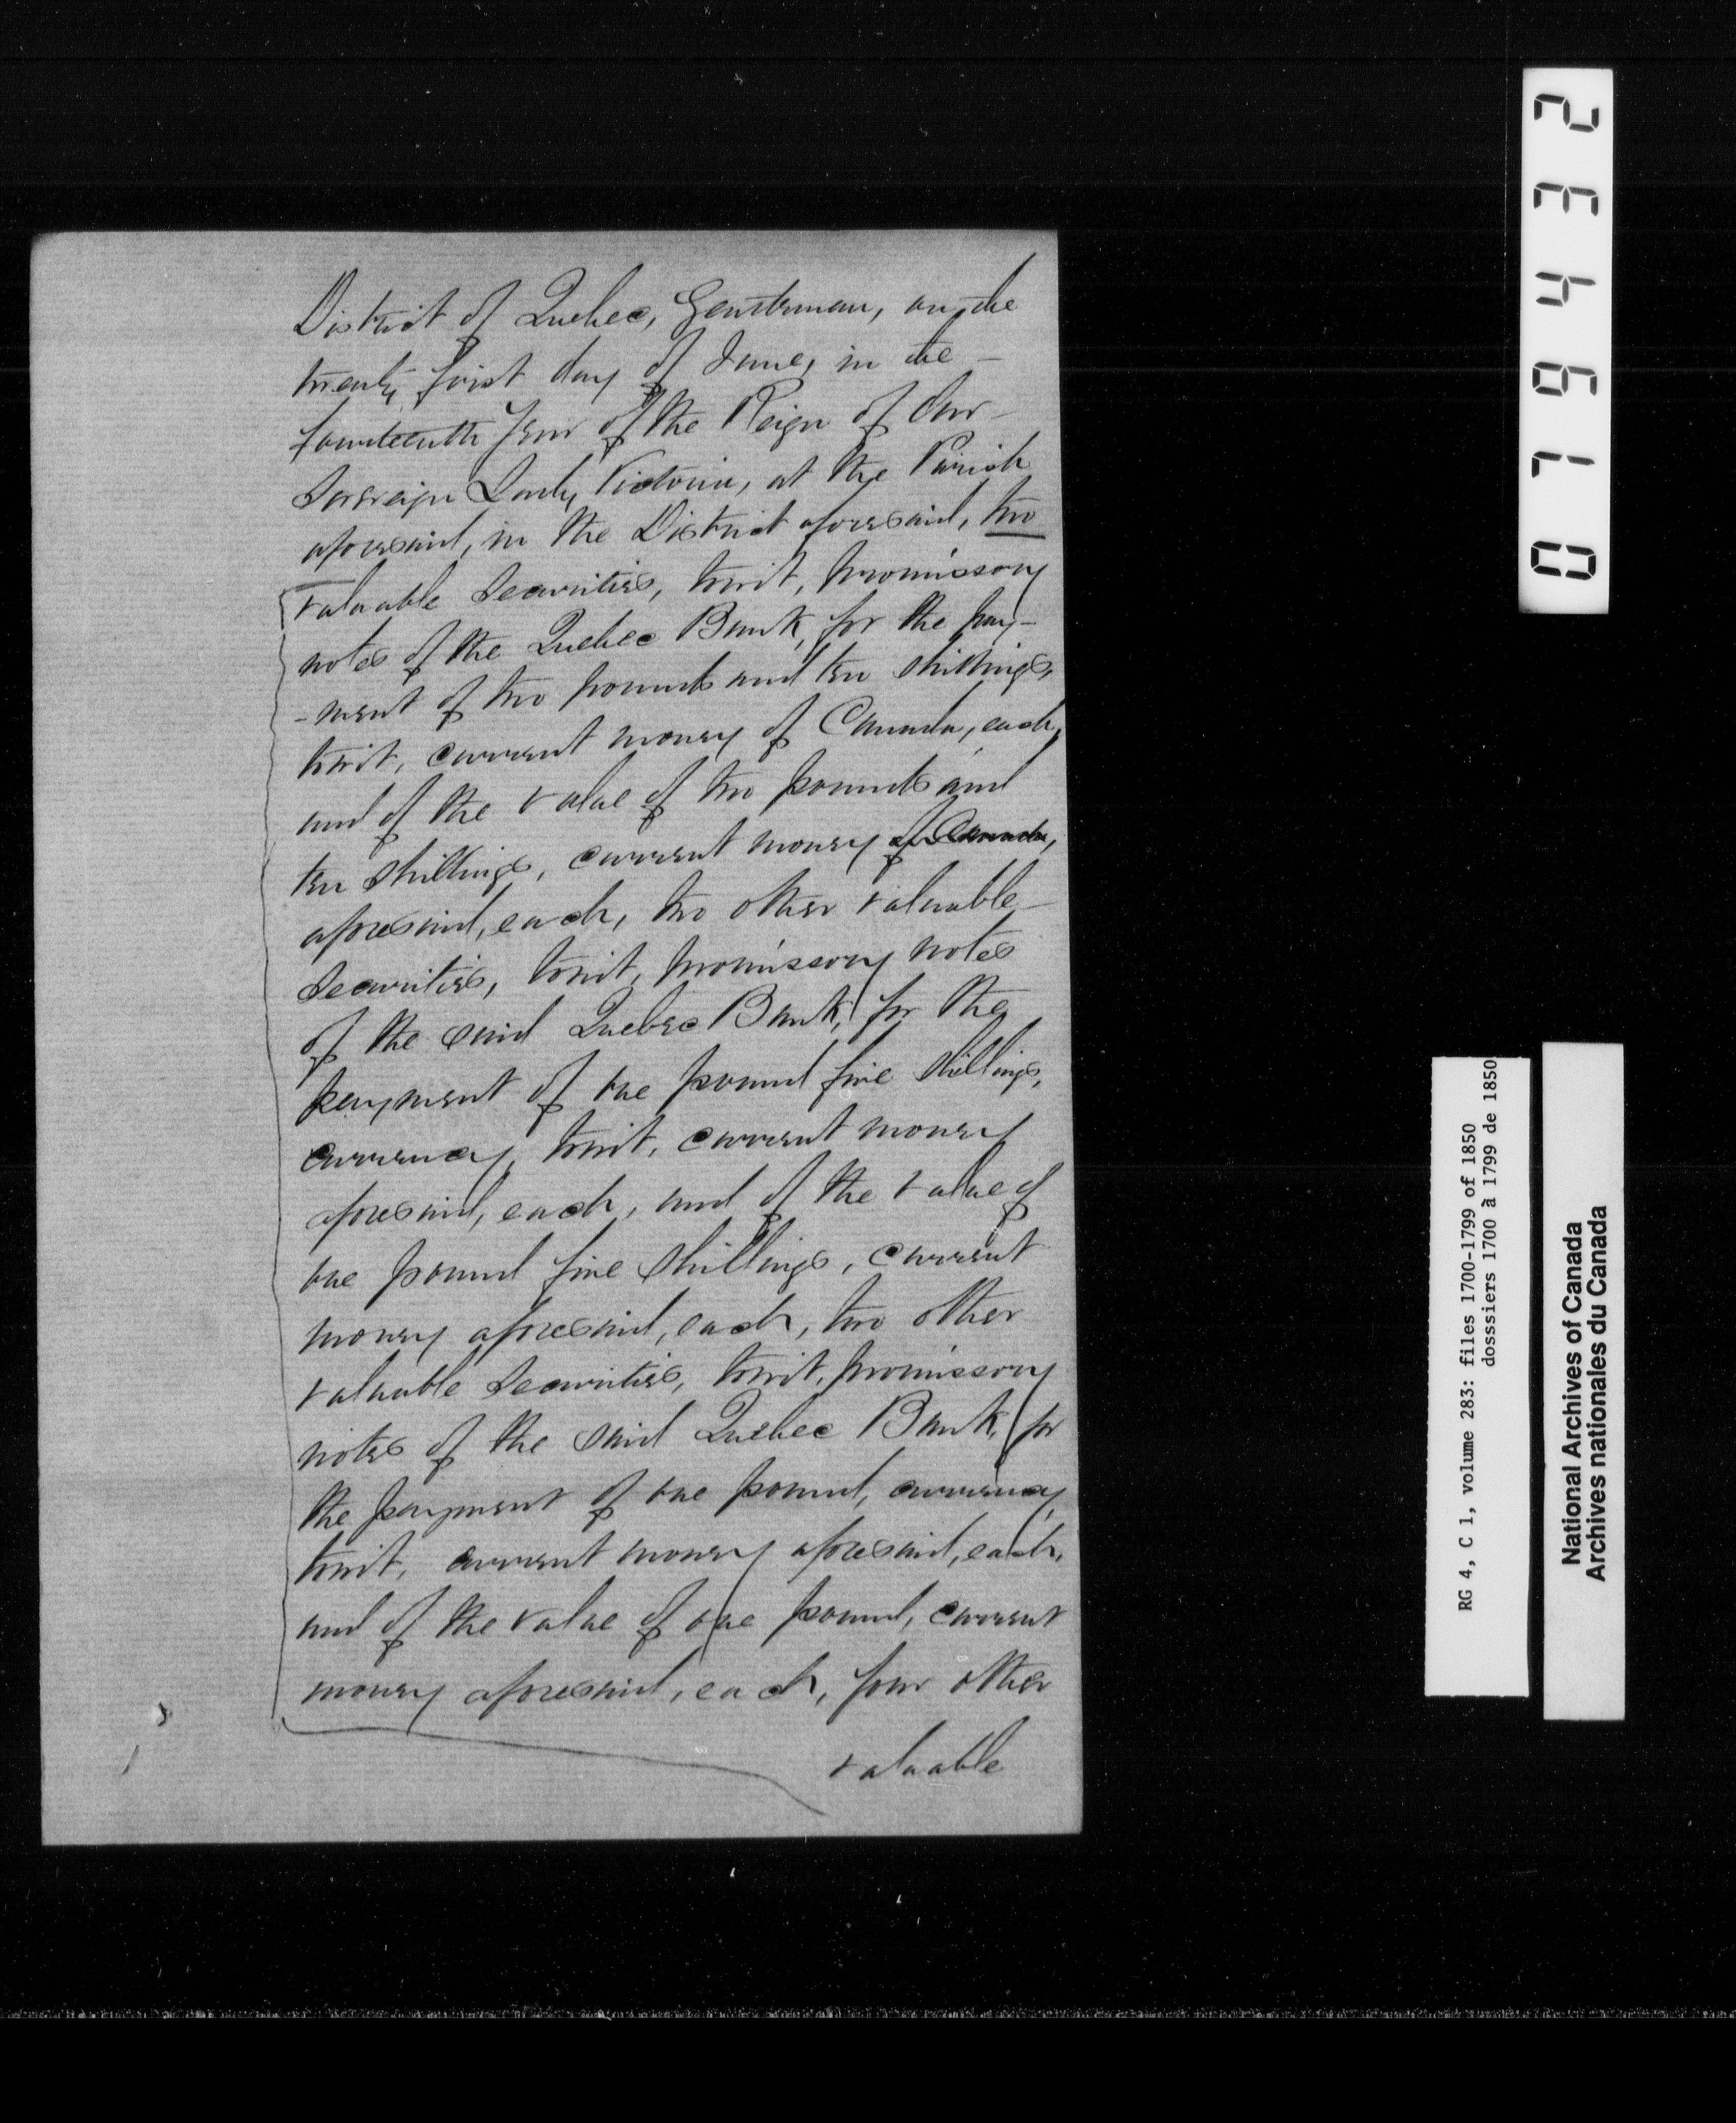 District of Quebec, Gentleman, on the
twenty first day of June, in the –
fourteenth Year of the Reign of Our –
Sovereign Lady Victoria, at the Parish
aforesaid, in the District aforesaid, two
valuable Securities, towit, promissory
notes of the Quebec Bank, for the pay-
-ment of two pounds and ten shillings,
towit, current money of Canada, each,
and of the value of two pounds and
ten shillings, current money of Canada,
aforesaid, each, two other valuable –
Securities, towit, promissory notes
of the said Quebec Bank, for the
payment of one pound five shillings,
currency, towit, current money
aforesaid, each, and of the value of
one pound five shillings, current
money aforesaid, each, two other
valuable Securities, towit, promissory
notes of the said Quebec Bank, for
the payment of one pound, currency,
towit, current money aforesaid, each,
and of the value of one pound, current
money aforesaid, each, four other
valuable
079432
RG 4, C 1, volume 283: files 1700-1799 of 1850
dosssiers 1700 à 1799 de 1850
National Archives of Canada
Archives nationales du Canada